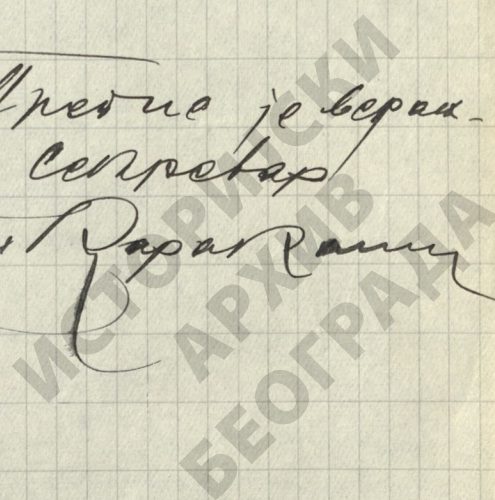 Препис је веран.
Секретар
Каракаш
ИСТОРИЈСКИ
АРХИВ
БЕОГРАДА